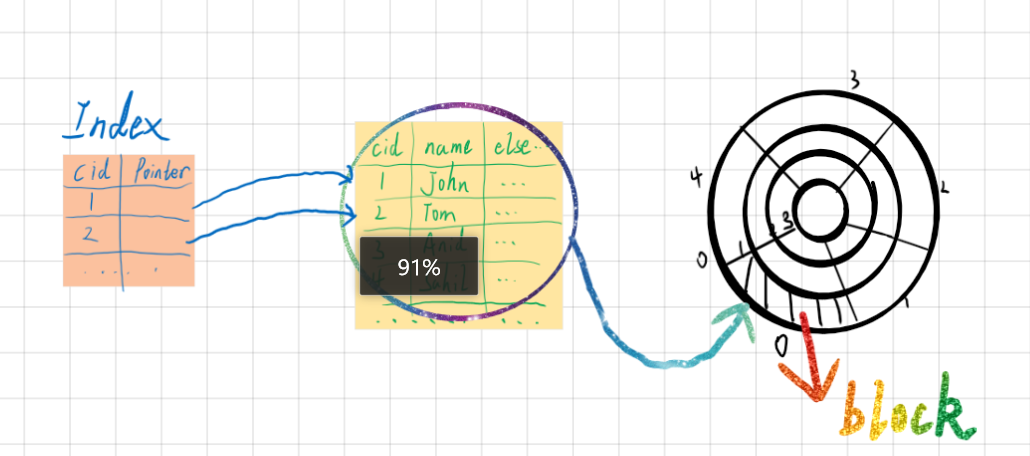 Index
cid Pointer
1
2
.....
cid name else..
1 John ...
2 Tom ...
3 Anid ...
91%
...
......
3
4
2
3
0
1
1
0
block